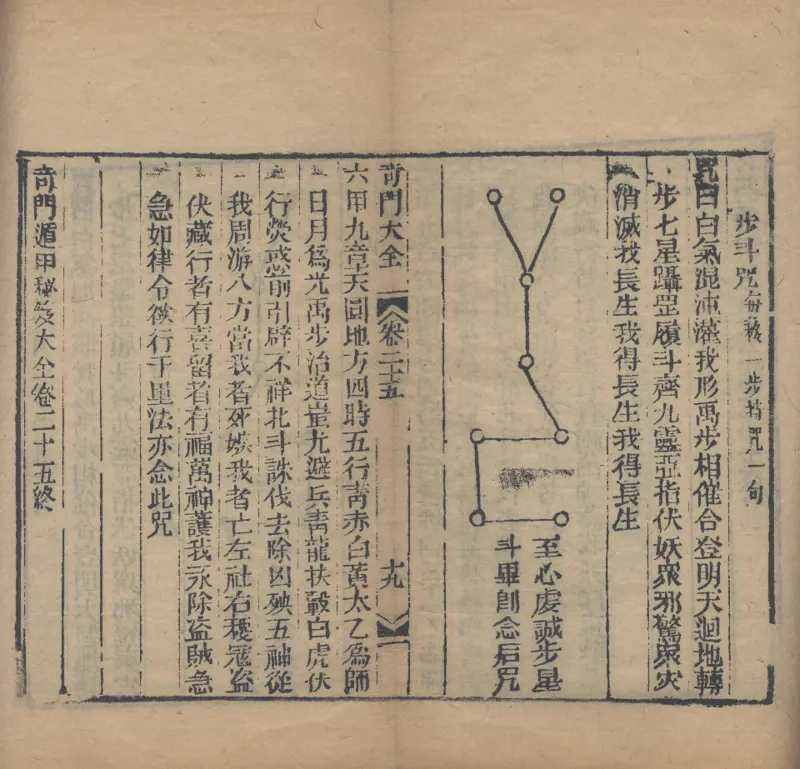 步斗咒每移一步掐咒一句
咒曰白氣混沌灌我形禹步相催合登明天迴地轉
步七星躡罡履斗齊九靈亞指伏妖衆邪驚衆灾
消滅我長生我得長生我得長生
至心虔誠步星
斗畢即念后咒
奇門大全
卷二十五
十九
六甲九章天圓地方四時五行靑赤白黃太乙為師
日月為光禹步治道蚩尤避兵靑龍扶轂白虎伏
行熒惑前引辟不祥北斗誅伐去除凶殃五神從
我周游八方當我者死嫉我者亡左社右稷寇盗
伏藏行者有喜留者有福萬神護我永除盗賊急
急如律令欲行千里法亦念此咒
奇門遁甲秘笈大全卷二十五終